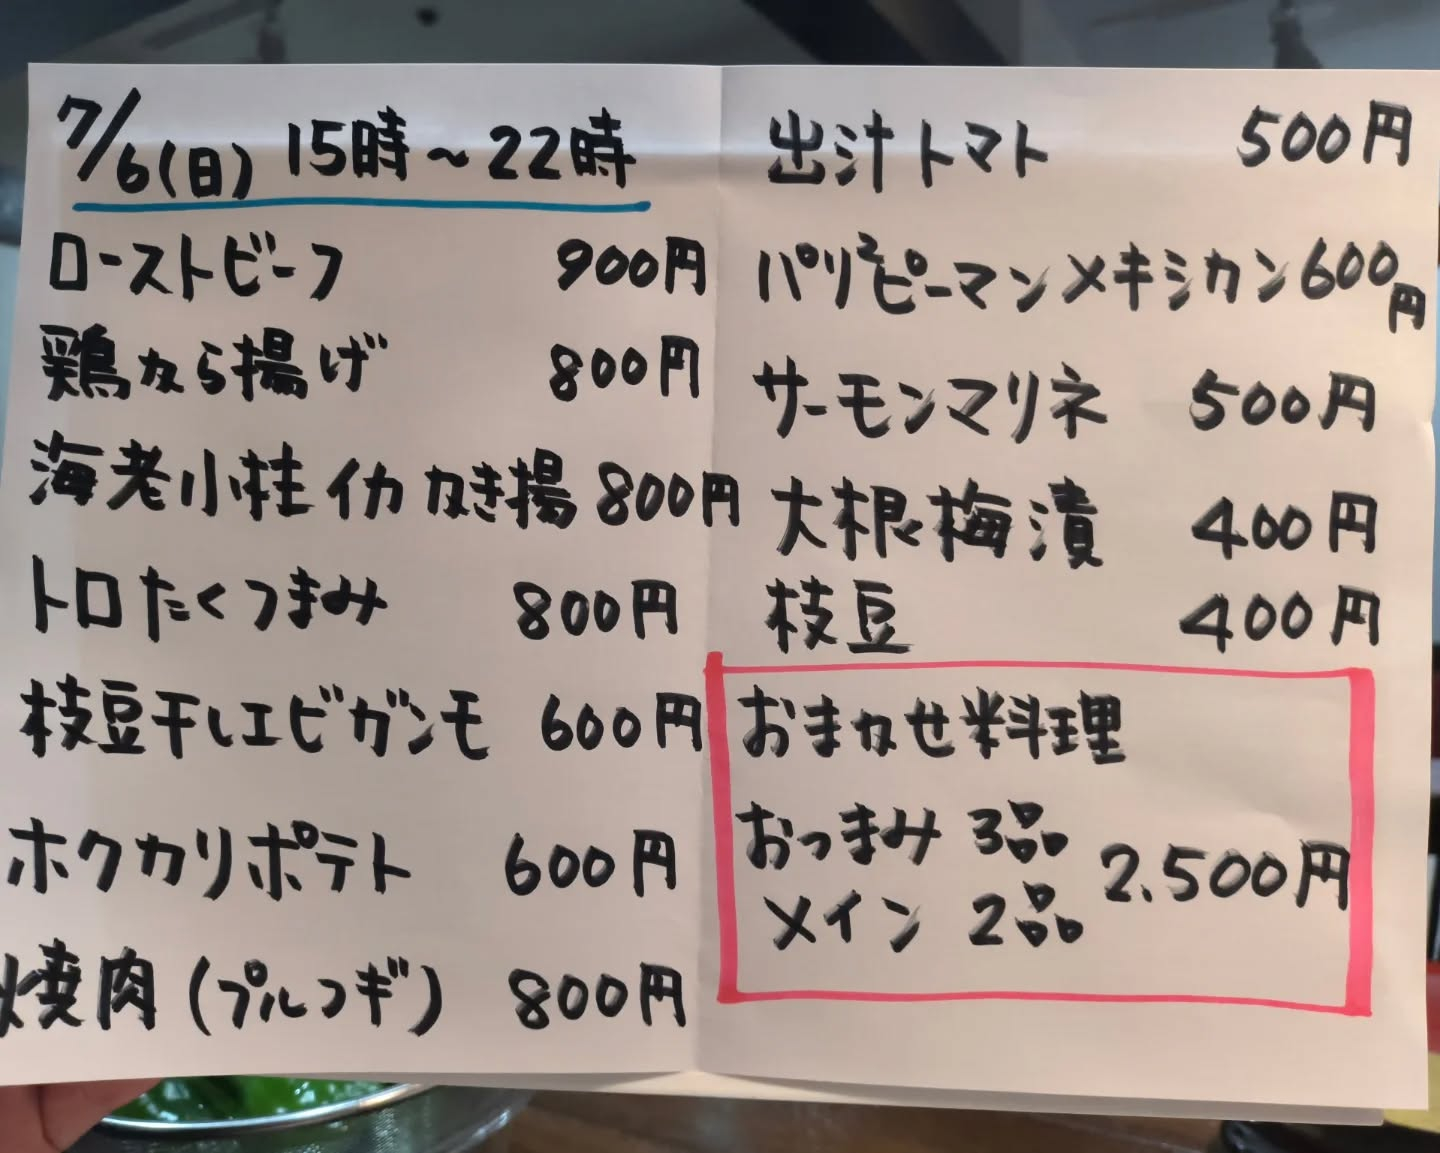 7/6(日) 15時～22時
ローストビーフ 900円
鶏から揚げ 800円
海老小柱イカかき揚 800円
トロたくつまみ 800円
枝豆干しエビガンモ 600円
ホクカリポテト 600円
焼肉(プルコギ) 800円
出汁トマト 500円
パリ²ピーマンメキシカン 600円
サーモンマリネ 500円
大根梅漬 400円
枝豆 400円
おまかせ料理
おつまみ 3品
メイン 2品 2.500円